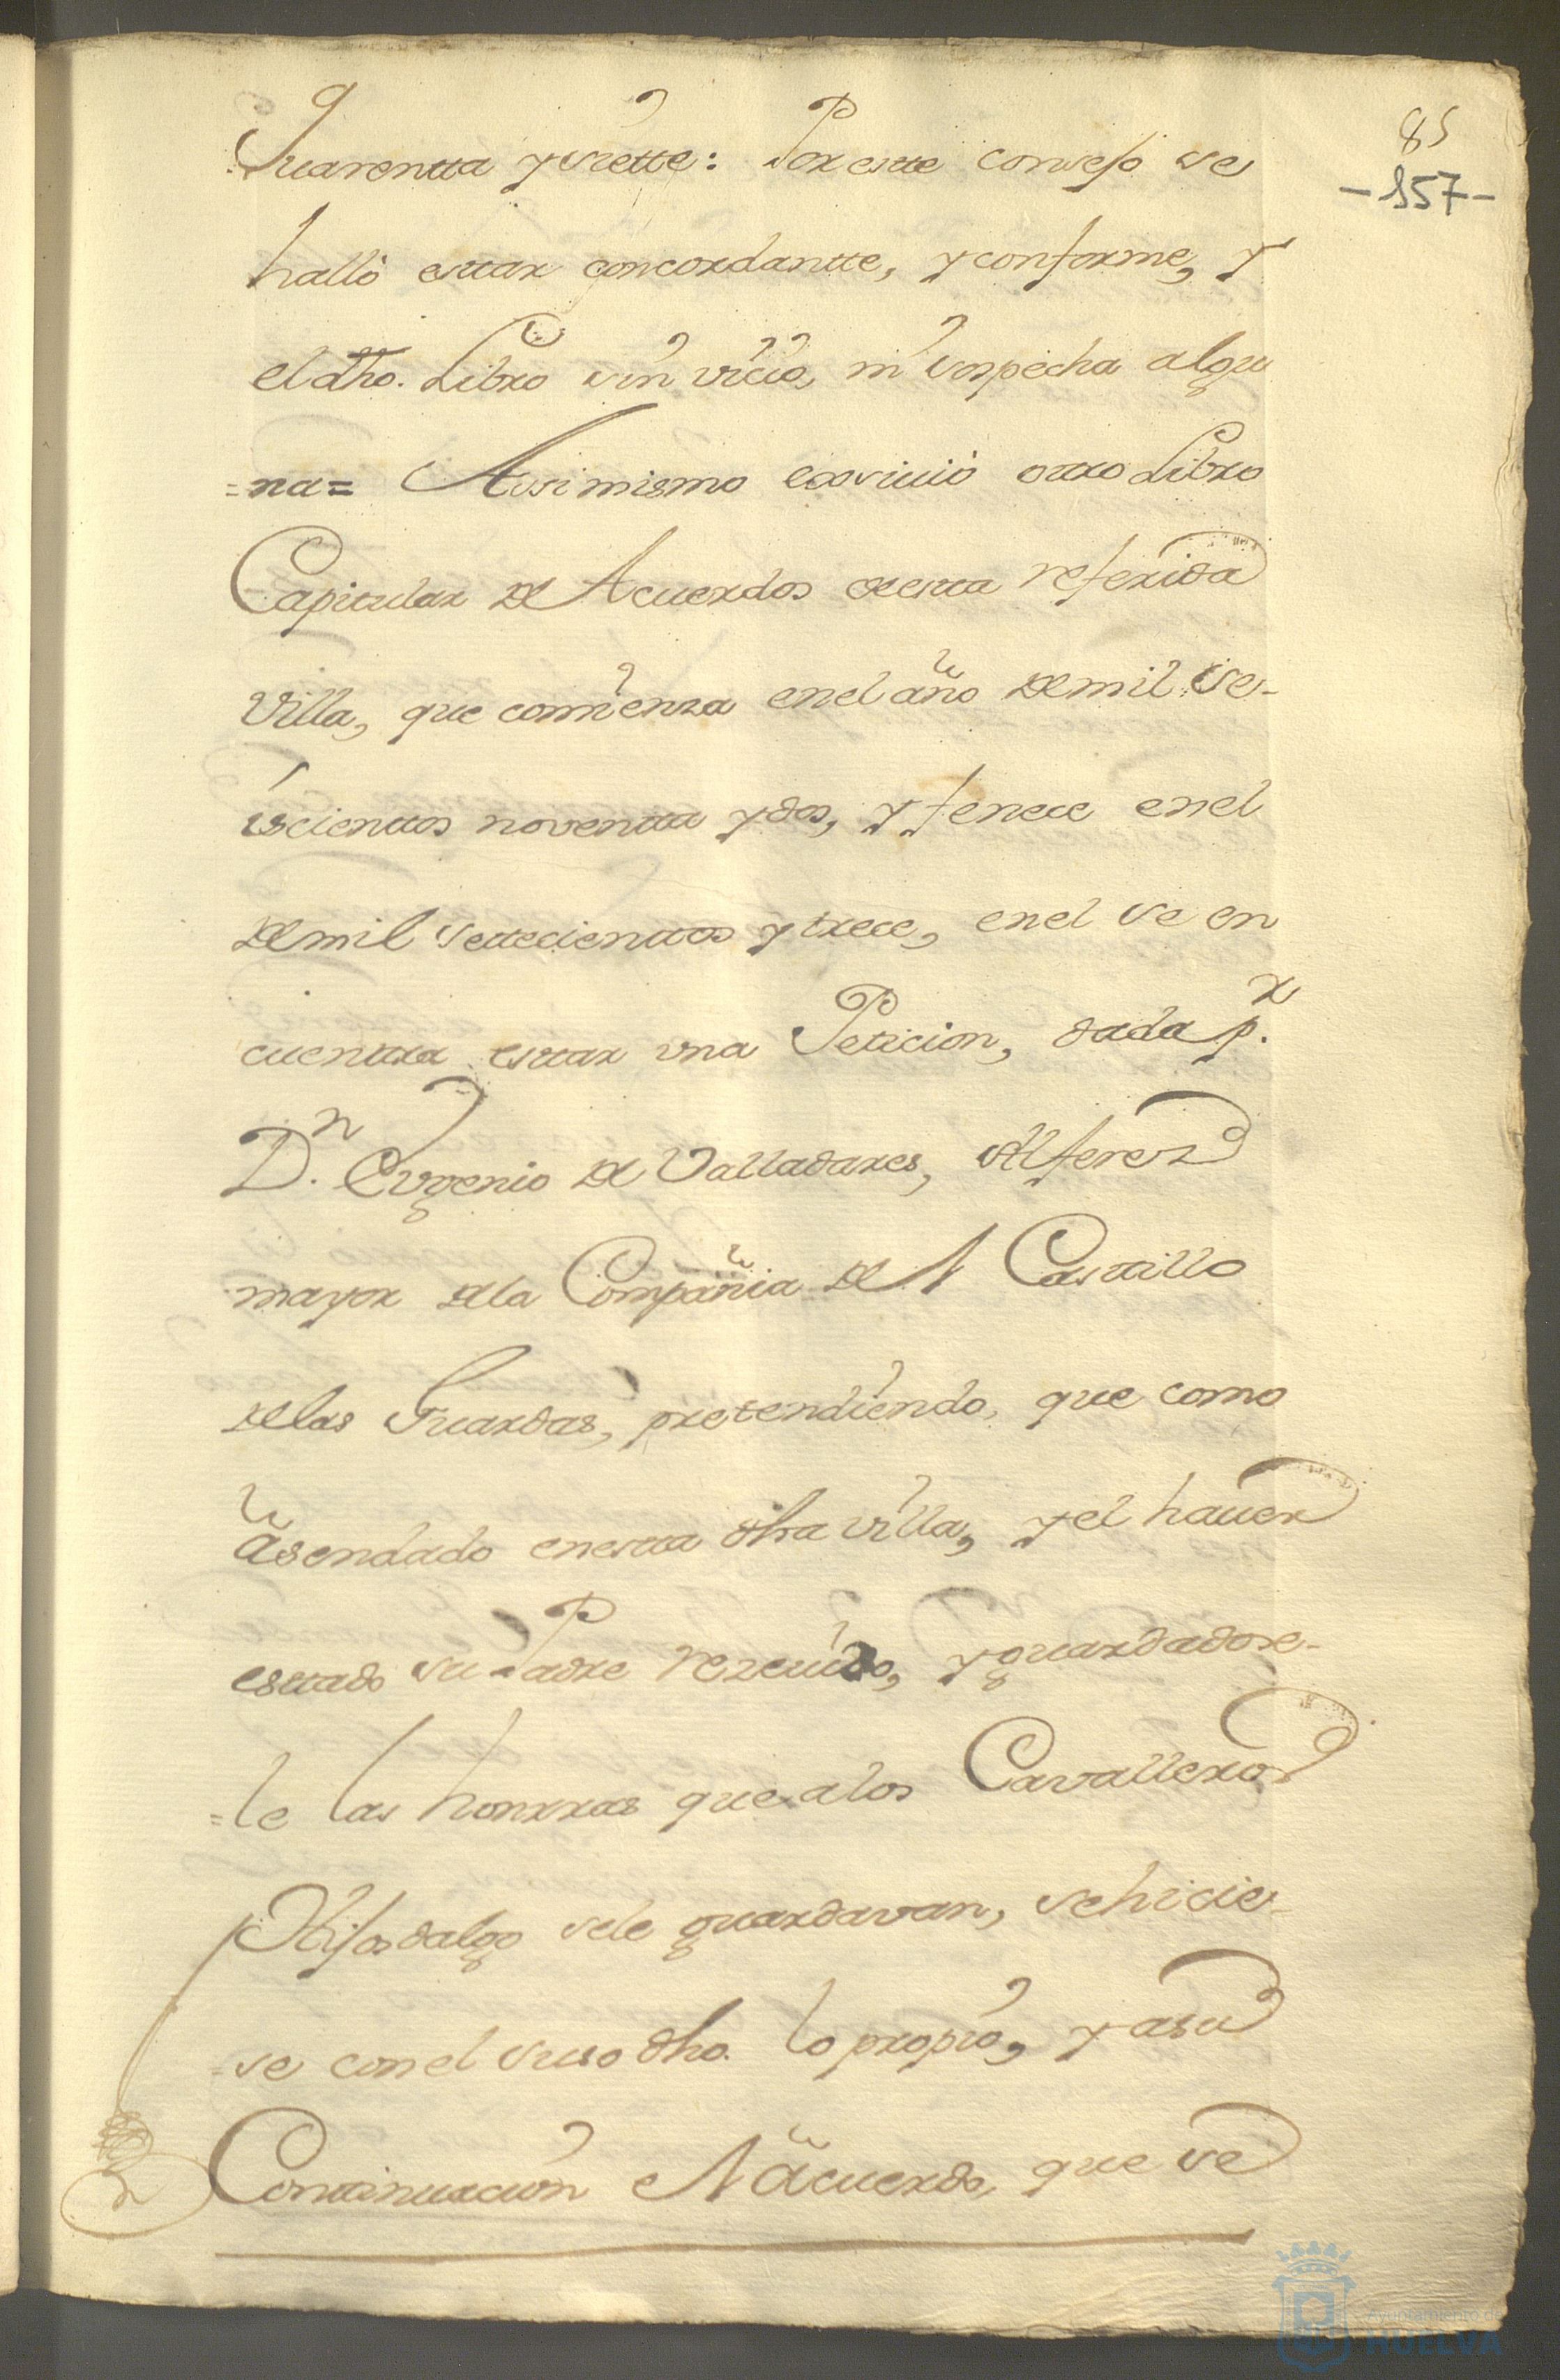 85
-157-
Quarentta y siette: Por estte consejo se
halló esttar concordantte, y conforme, y
el dho. Libro sin vicio, ni sospecha algu
=na= Assimismo exsiuió otro Libro
Capitular de Acuerdos de estta referida
Villa, que comienza en el año de mil se-
iscienttos noventta y dos, y fenece en el
de mil settecienttos y trece, en el se en
cuenttra esttar vna Peticion, dada p.r
D.n Eugenio de Valladares, Alferez
mayor de la Compañia del Casttillo
de las Guardas, pretendiendo, que como
asendado en estta dha villa, y el hauer
esttado su Padre rezeuido, y guardadose-
=le las honrras que a los Cavalleros
Hijosdalgo se le guardavan, se hicie-
=se con el susodho. lo propio, y a su
Continuacion el acuerdo, que se
Ayuntamiento de
HUELVA